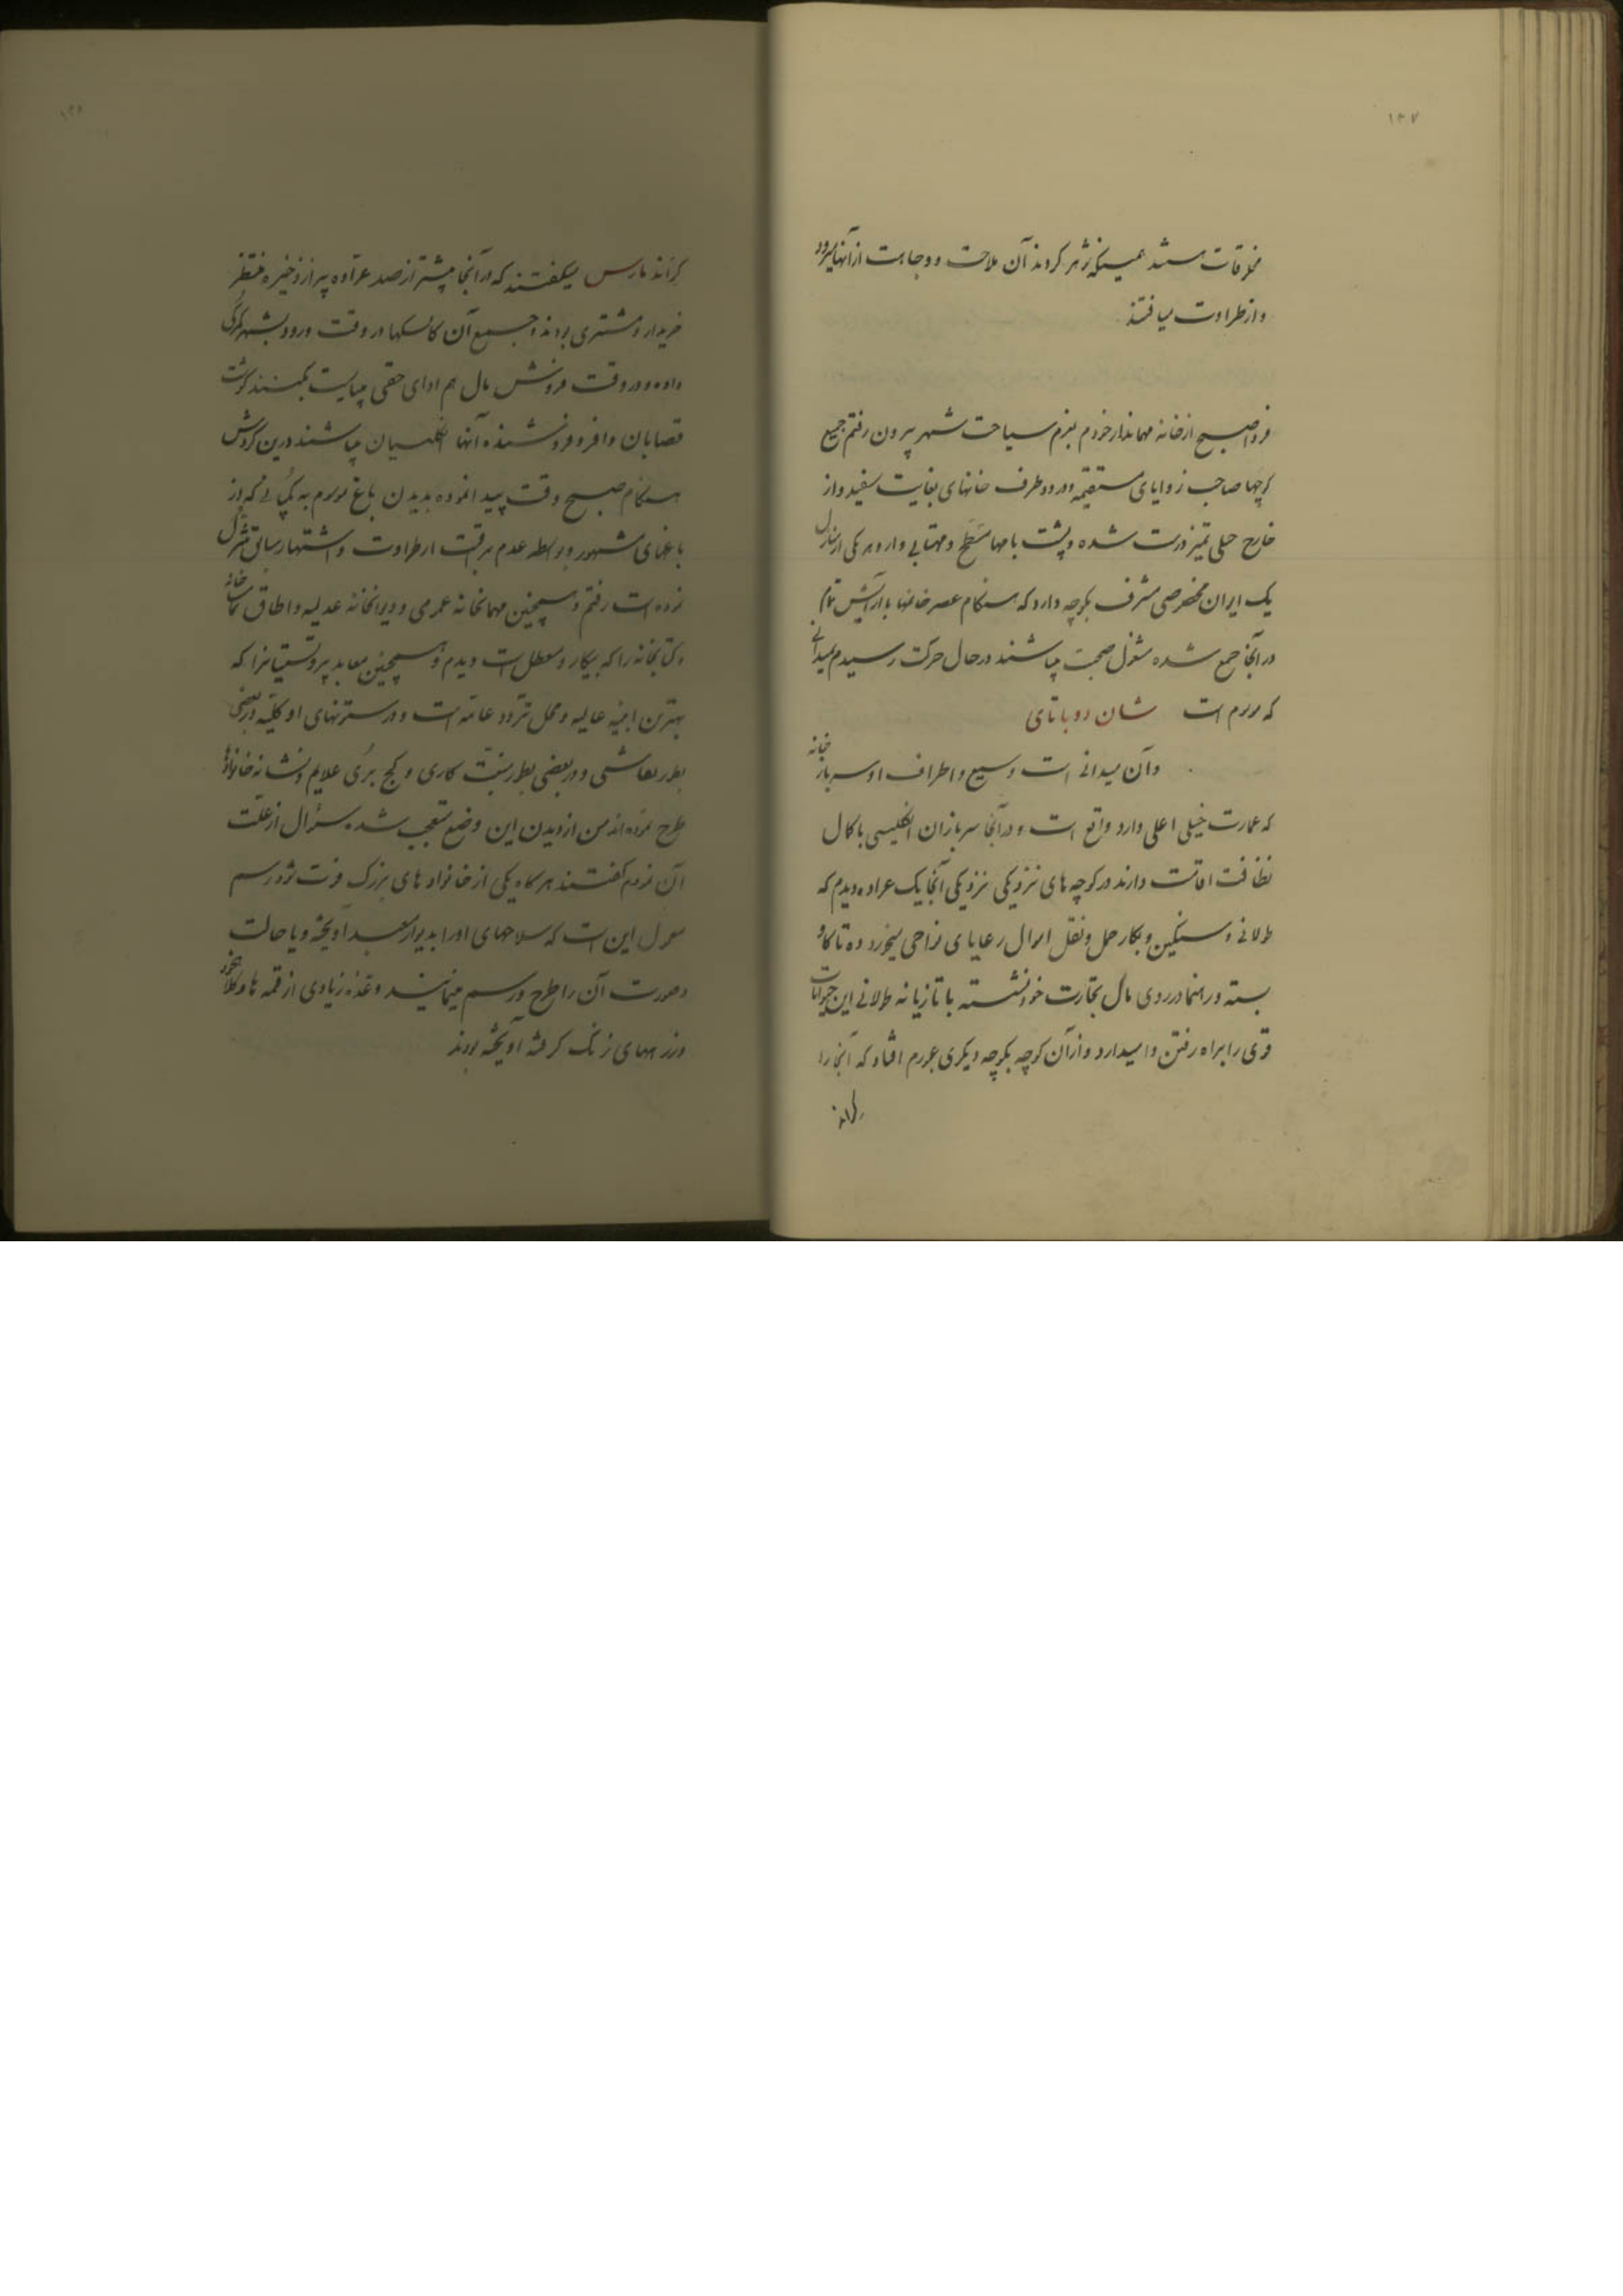 ۱۳۷
مخلوقات هستند همینکه شوهر کردند آن ملاحت و وجاهت از آنها میرود
و از طراوت میافتند
فردا صبح از خانه مهماندار خودم بعزم سیاحت شهر بیرون رفتم جمیع
کوچها صاحب زوایای مستقیمه و در دو طرف خانهای بغایت سفید و از
خارج خیلی تمیز درست شده و پشت بامها مسطح و مهتابی دار و هر یکی از منازل
یک ایوان مخصوصی مشرف بکوچه دارد که هنگام عصر خانمها با آرایش تمام
در آنجا جمع شده مشغول صحبت میباشند در حال حرکت رسیدم بمیدانی
که موسوم است شان دوباتای
و آن میدانی است وسیع و اطراف او سربازخانه
که عمارت خیلی اعلی دارد واقع است و در آنجا سربازان انگلیسی با کمال
نظافت اقامت دارند در کوچه های نزدیکی نزدیکی آنجا یک عراده دیدم که
طولانی و سنگین و بکار حمل و نقل اموال رعایای نواحی میخورد ده تا گاو
بسته و راهنما در روی مال تجارت خود نشسته با تازیانه طولانی این حیوانات
قوی را براه رفتن وامیدارد و از آن کوچه بکوچه دیگری عبورم افتاد که آنجا را
کراند
۱۳۸
کراند مارس میگفتند که در آنجا بیشتر از صد عراده پر از ذخیره منتظر
خریدار و مشتری بودند و جمیع آن کالسکها در وقت ورود بشهر گمرکی
داده و در وقت فروش مال هم ادای حقی میبایست بکنند گوشت
قصابان وافر و فروشنده آنها انگلیسیان میباشند درین گردش
هنگام صبح وقت پیدا نموده بدیدن باغ موسوم به کمپانی که از
باغهای مشهور و بواسطه عدم مراقبت از طراوت و اشتهار سابق تنزل
نموده است رفتم و همچنین مهمانخانه عمومی و دیوانخانه عدلیه و اطاق تماشاخانه
و کتابخانه را که بیکار و معطل است دیدم و همچنین معابد پروتستیانرا که
بهترین ابنیه عالیه و محل تردد عامه است و در ستونهای او کلیه در بعضی
بطور نقاشی و در بعضی بطور منبت کاری و گچ بری علایم و نشانه خانواده
طرح نموده اند من از دیدن این وضع متعجب شده سؤال از علت
آن نمودم گفتند هرگاه یکی از خانواده های بزرگ فوت شود رسم
معمول این است که سلاحهای او را بدیوار معبد آویخته و یا حالت
و صورت آن را طرح و رسم مینمایند و عده زیادی از قمه ها و کلاه خود
و زره های زنگ گرفته آویخته بودند